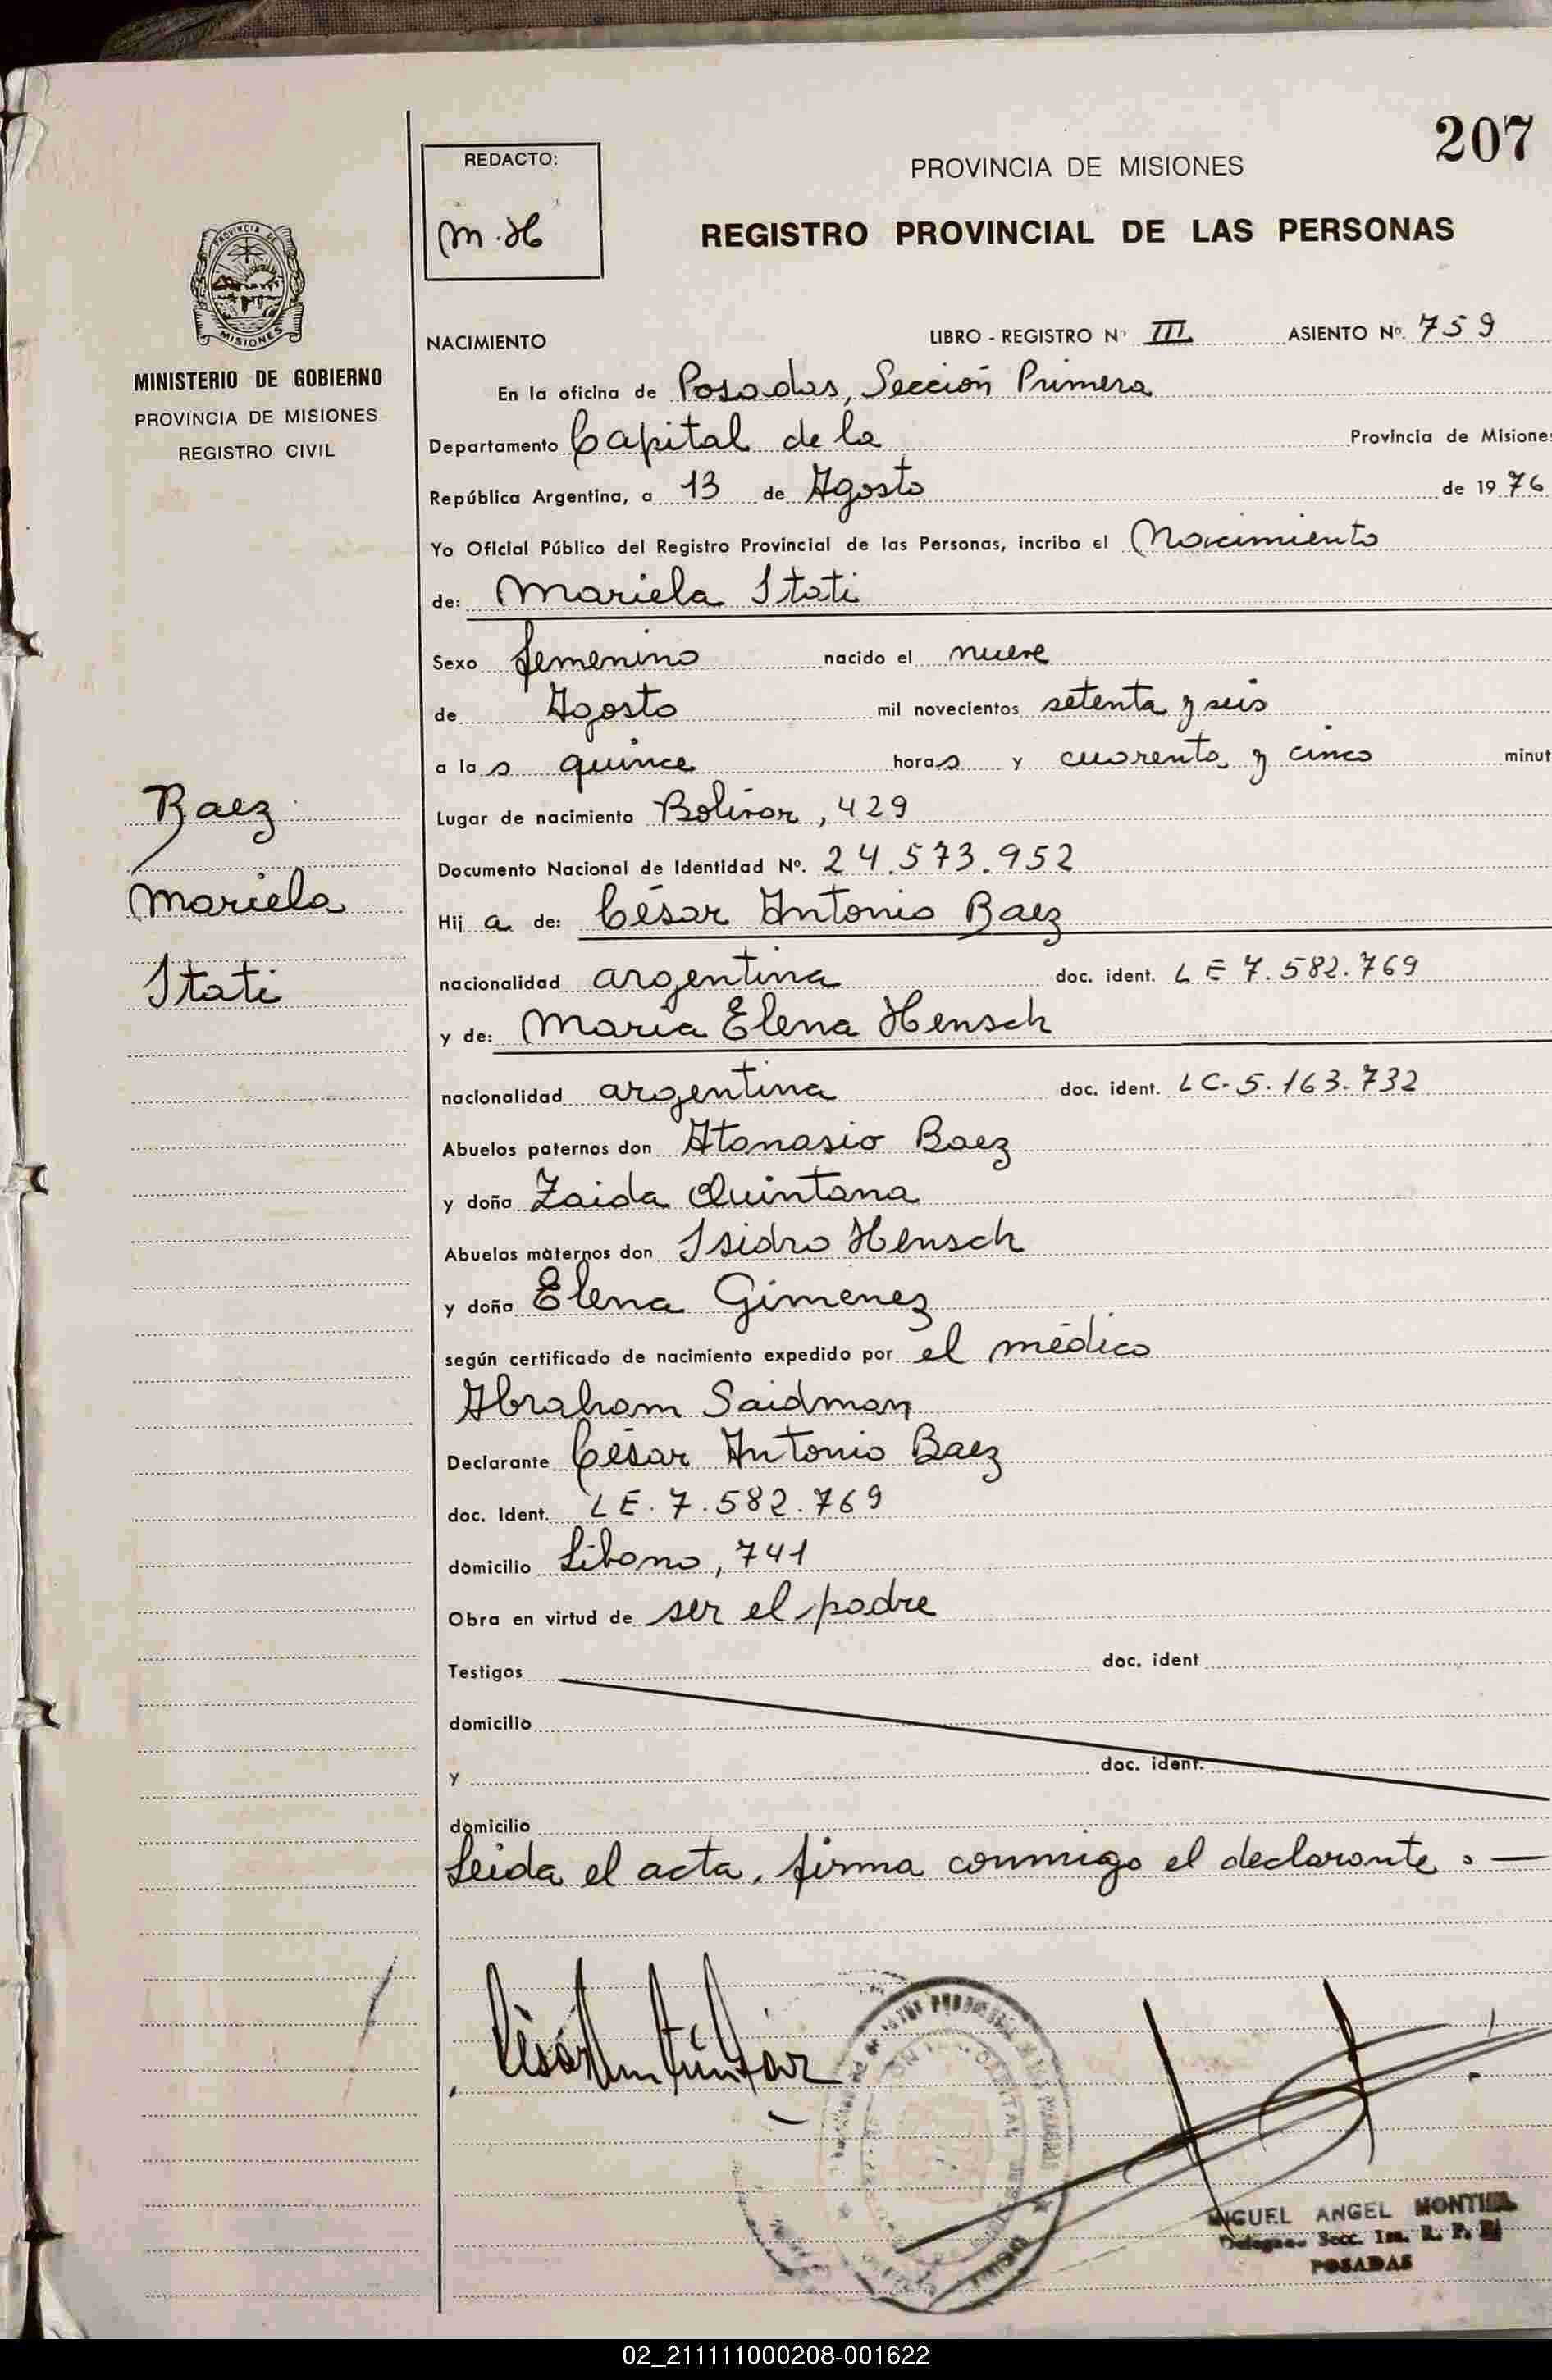 207
REDACTO:
M.H
PROVINCIA DE MISIONES
REGISTRO PROVINCIAL DE LAS PERSONAS
PROVINCIA DE
MISIONES
MINISTERIO DE GOBIERNO
PROVINCIA DE MISIONES
REGISTRO CIVIL
Baez
Mariela
Itati
NACIMIENTO LIBRO - REGISTRO Nº III ASIENTO Nº. 759
En la oficina de Posadas, Sección Primera
Departamento Capital de la Provincia de Misiones
República Argentina, a 13 de Agosto de 1976
Yo Oficial Público del Registro Provincial de las Personas, incribo el Nacimiento
de: Mariela Itati
Sexo femenino nacido el nueve
de Agosto mil novecientos setenta y seis
a las quince horas y cuarenta y cinco minut
Lugar de nacimiento Bolivar, 429
Documento Nacional de Identidad Nº. 24.573.952
Hij a de: César Antonio Baez
nacionalidad argentina doc. ident. LE 7.582.769
y de: Maria Elena Hensch
nacionalidad argentina doc. ident. LC. 5.163.732
Abuelos paternos don Atanasio Baez
y doña Zaida Quintana
Abuelos maternos don Isidro Hensch
y doña Elena Gimenez
según certificado de nacimiento expedido por el médico
Abraham Saidman
Declarante César Antonio Baez
doc. Ident. LE. 7.582.769
domicilio Libano, 741
Obra en virtud de ser el padre
Testigos doc. ident
domicilio
y doc. ident.
domicilio
Leida el acta, firma conmigo el declarante. —
MIGUEL ANGEL MONTIEL
Secc. 1ra. R. P. P.
POSADAS
02_211111000208-001622